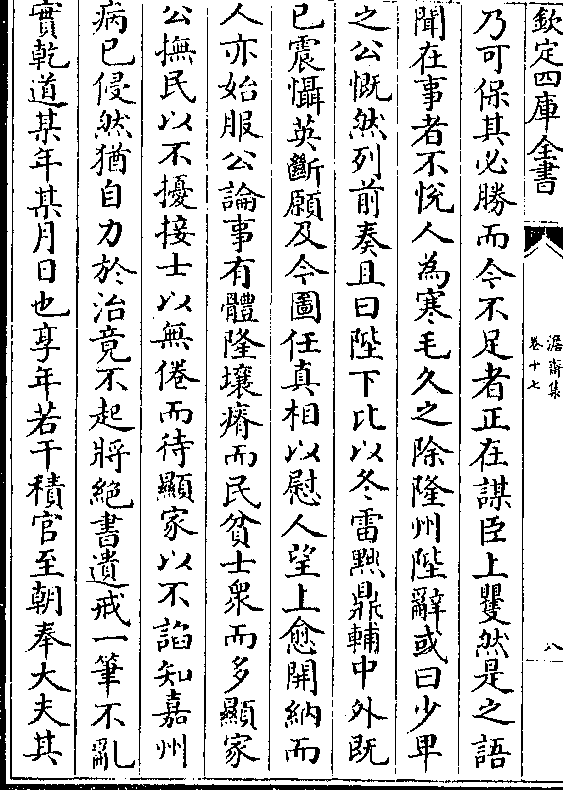 欽定四庫全書
澹齋集
卷十七
八
乃可保其必勝而今不足者正在謀臣上矍然是之語
聞在事者不悅人為寒毛久之除隆州陛辭或曰少卑
之公慨然列前奏且曰陛下比以冬雷黜鼎輔中外既
已震懾英斷願及今圖任真相以慰人望上愈開納而
人亦始服公論事有體隆壤瘠而民貧士衆而多顯家
公撫民以不擾接士以無倦而待顯家以不諂知嘉州
病已侵然猶自力於治竟不起將絶書遺戒一筆不亂
實乾道某年某月日也享年若干積官至朝奉大夫其